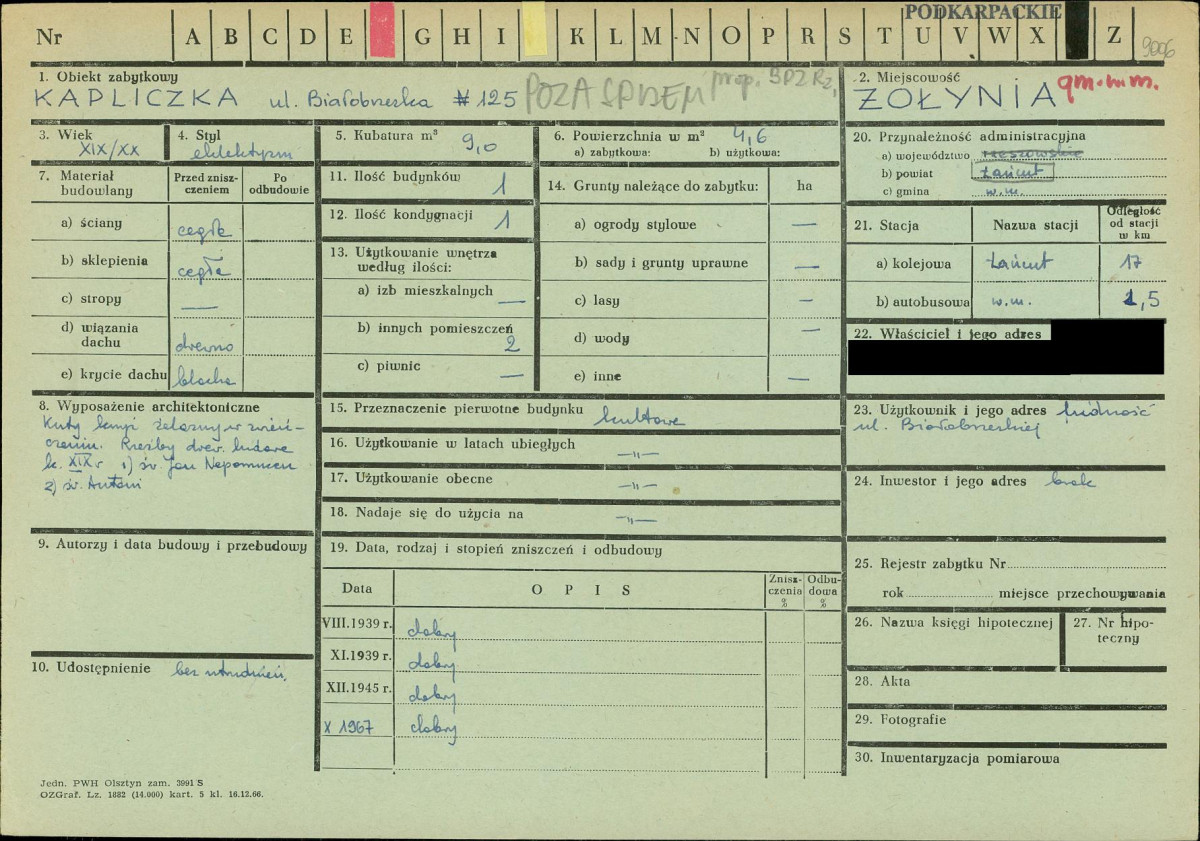 PODKARPACKIE
Nr A B C D E G H I K L M N O P R S T U V W X Z
9006
1. Obiekt zabytkowy
KAPLICZKA ul. Białobrzeska # 125
POZA SPISEM prop. BDZ Rz,
2. Miejscowość
ŻOŁYNIA gm. w.m.
3. Wiek
XIX/XX
4. Styl
eklektyzm
5. Kubatura m³
9,0
6. Powierzchnia w m² 4,6
a) zabytkowa: b) użytkowa:
7. Materiał budowlany
Przed zniszczeniem
Po odbudowie
a) ściany cegła
b) sklepienia cegła
c) stropy —
d) wiązania dachu drewno
e) krycie dachu blacha
8. Wyposażenie architektoniczne
Kuty krzyż żelazny w zwień-
czeniu. Rzeźby drew. ludowe
k. XIX w 1) św. Jan Nepomucen
2) św. Antoni
9. Autorzy i data budowy i przebudowy
10. Udostępnienie bez utrudnień.
11. Ilość budynków 1
12. Ilość kondygnacji 1
13. Użytkowanie wnętrza
według ilości:
a) izb mieszkalnych —
b) innych pomieszczeń 2
c) piwnic —
14. Grunty należące do zabytku: ha
a) ogrody stylowe —
b) sady i grunty uprawne —
c) lasy —
d) wody —
e) inne —
15. Przeznaczenie pierwotne budynku kultowe
16. Użytkowanie w latach ubiegłych —„—
17. Użytkowanie obecne —„—
18. Nadaje się do użycia na —„—
19. Data, rodzaj i stopień zniszczeń i odbudowy
Data OPIS Zniszczenia % Odbudowa %
VIII.1939 r. dobry
XI.1939 r. dobry
XII.1945 r. dobry
X 1967 dobry
20. Przynależność administracyjna
a) województwo rzeszowskie
b) powiat Łańcut
c) gmina w.m.
21. Stacja Nazwa stacji Odległość od stacji w km
a) kolejowa Łańcut 17
b) autobusowa w.m. 1,5
22. Właściciel i jego adres
23. Użytkownik i jego adres ludność
ul. Białobrzeskiej
24. Inwestor i jego adres brak
25. Rejestr zabytku Nr
rok miejsce przechowywania
26. Nazwa księgi hipotecznej
27. Nr hipo-
teczny
28. Akta
29. Fotografie
30. Inwentaryzacja pomiarowa
Jedn. PWH Olsztyn zam. 3991 S
OZGraf. Lz. 1882 (14.000) kart. 5 kl. 16.12.66.